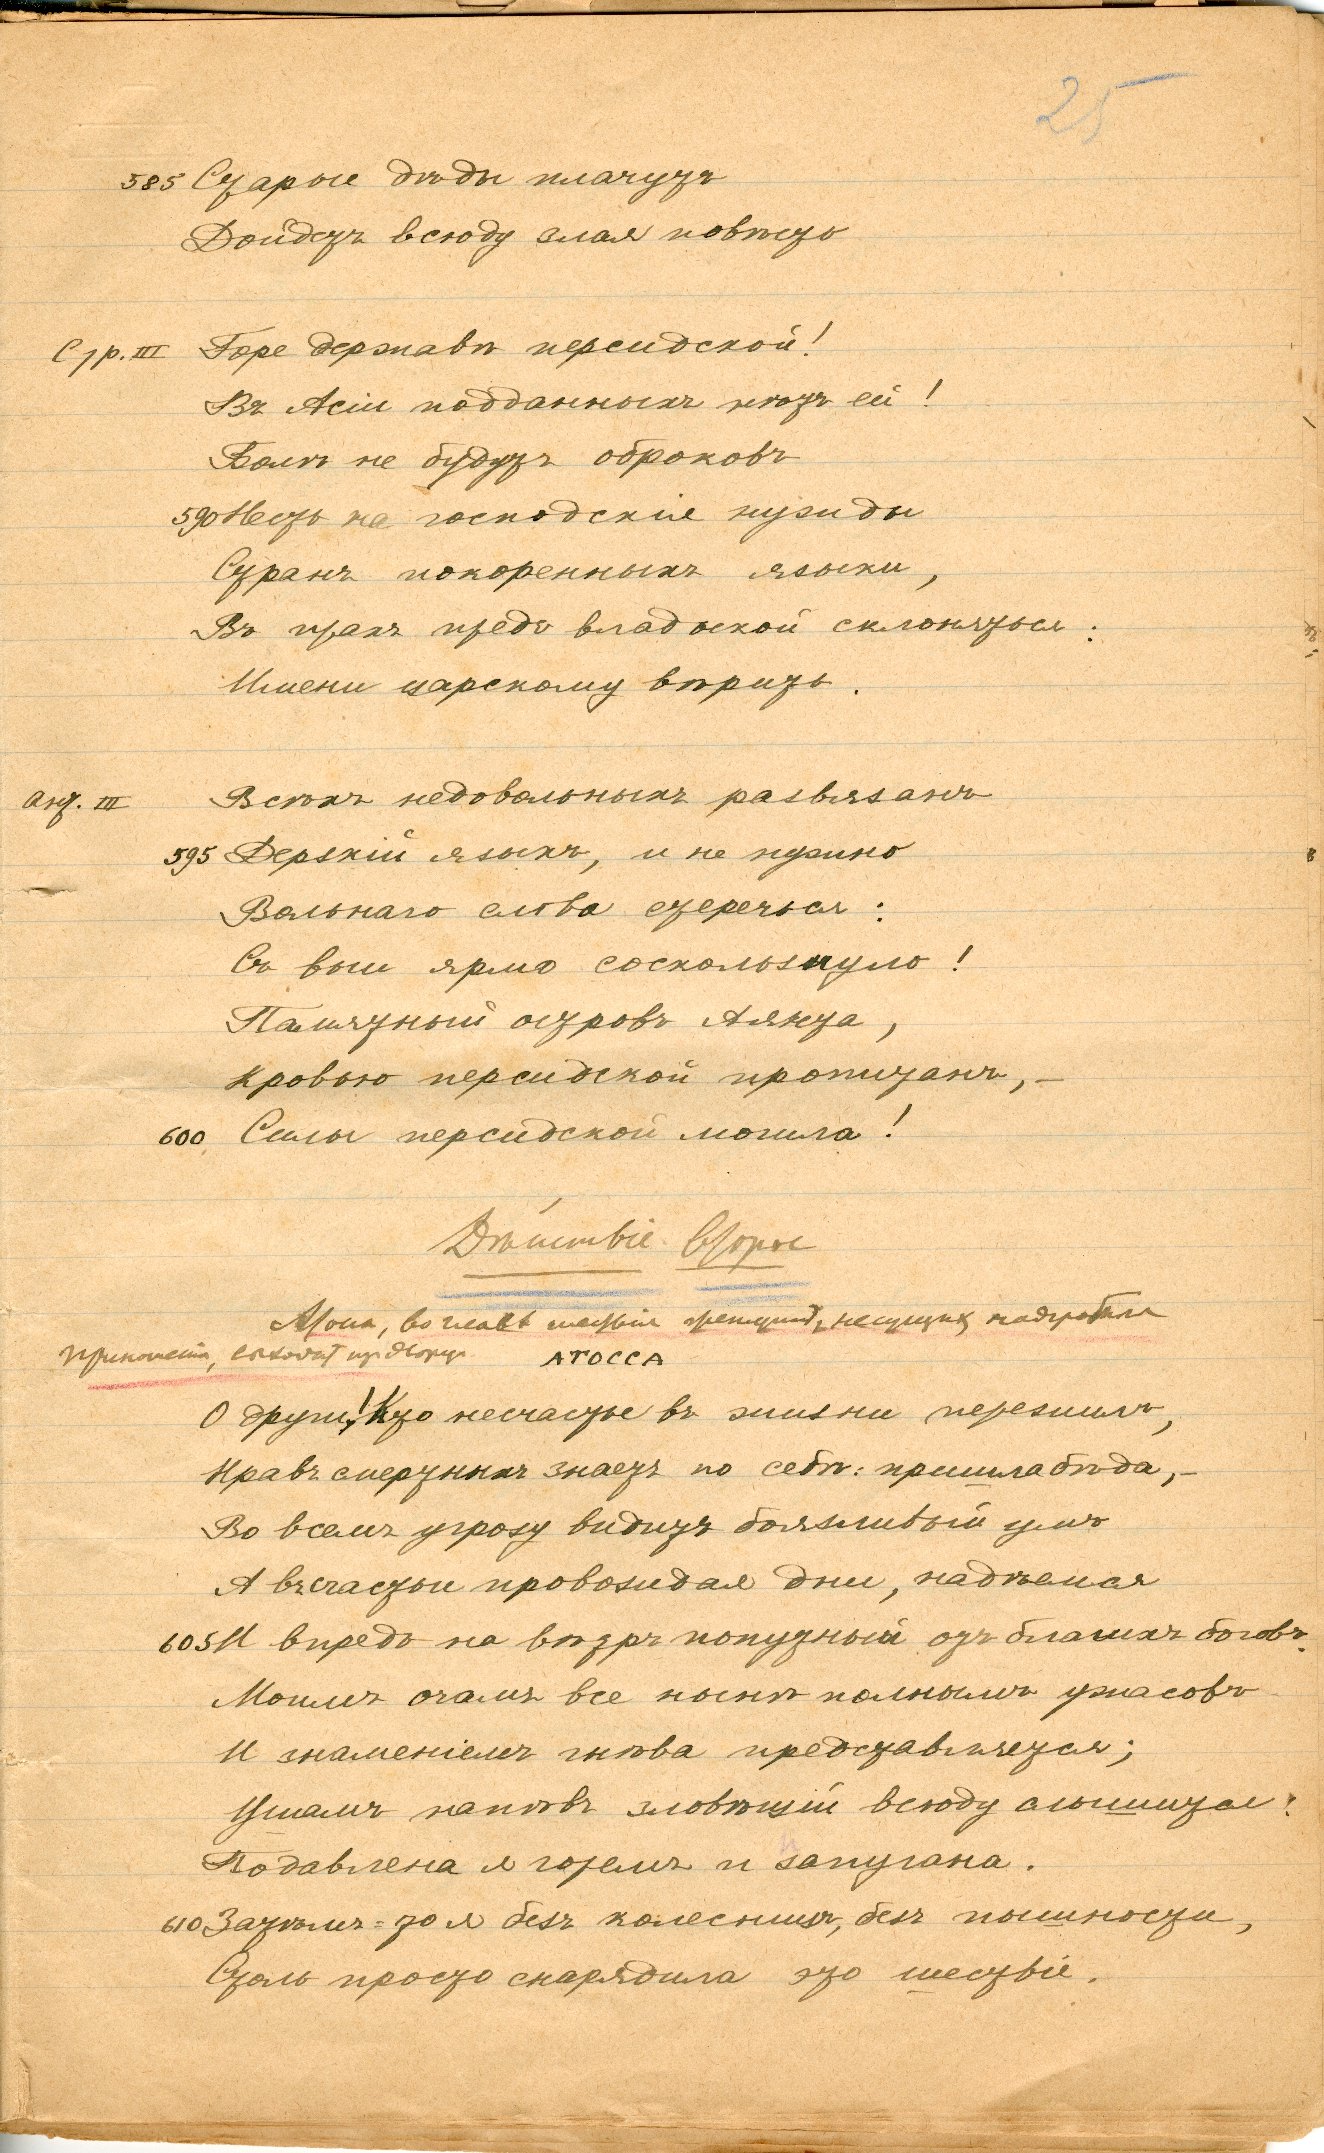 25
585 Старые дѣды плачутъ
Дойдетъ всюду злая повѣсть
Стр. III Горе державѣ персидской!
Въ Асіи подданныхъ нѣтъ ей!
Болѣ не будутъ оброковъ
590 Несть на господскія нужды
Странъ покоренныхъ языки,
Въ прахъ предъ владыкой склоняться:
Имени царскому вѣрить.
Ант. III Всѣхъ недовольныхъ развязанъ
595 Дерзкій языкъ, и не нужно
Вольнаго слова стеречься:
Съ выи ярмо соскользнуло!
Памятный островъ Аянта,
Кровью персидской пропитанъ, –
600 Силы персидской могила!
Дѣйствіе второе
Атосса, во главѣ шествія женщинъ, несущихъ надгробныя
приношенія, выходитъ изъ дворца
АТОССА
О други! Кто несчастье въ жизни пережилъ,
Нравъ смертныхъ знаетъ по себѣ: пришла бѣда, –
Во всемъ угрозу видитъ боязливый умъ
А въ счастьи провожидая дни, надѣемся
605 И впредь на вѣтръ попутный отъ благихъ боговъ.
Моимъ очамъ все нынѣ полнымъ ужасовъ
И знаменіемъ гнѣва представляется;
Ушамъ напѣвъ зловѣщій всюду слышится:
Подавлена я горемъ и запугана.
610 Затѣмъ-то я безъ колесницъ, безъ пышности,
Столь просто снарядила это шествіе.